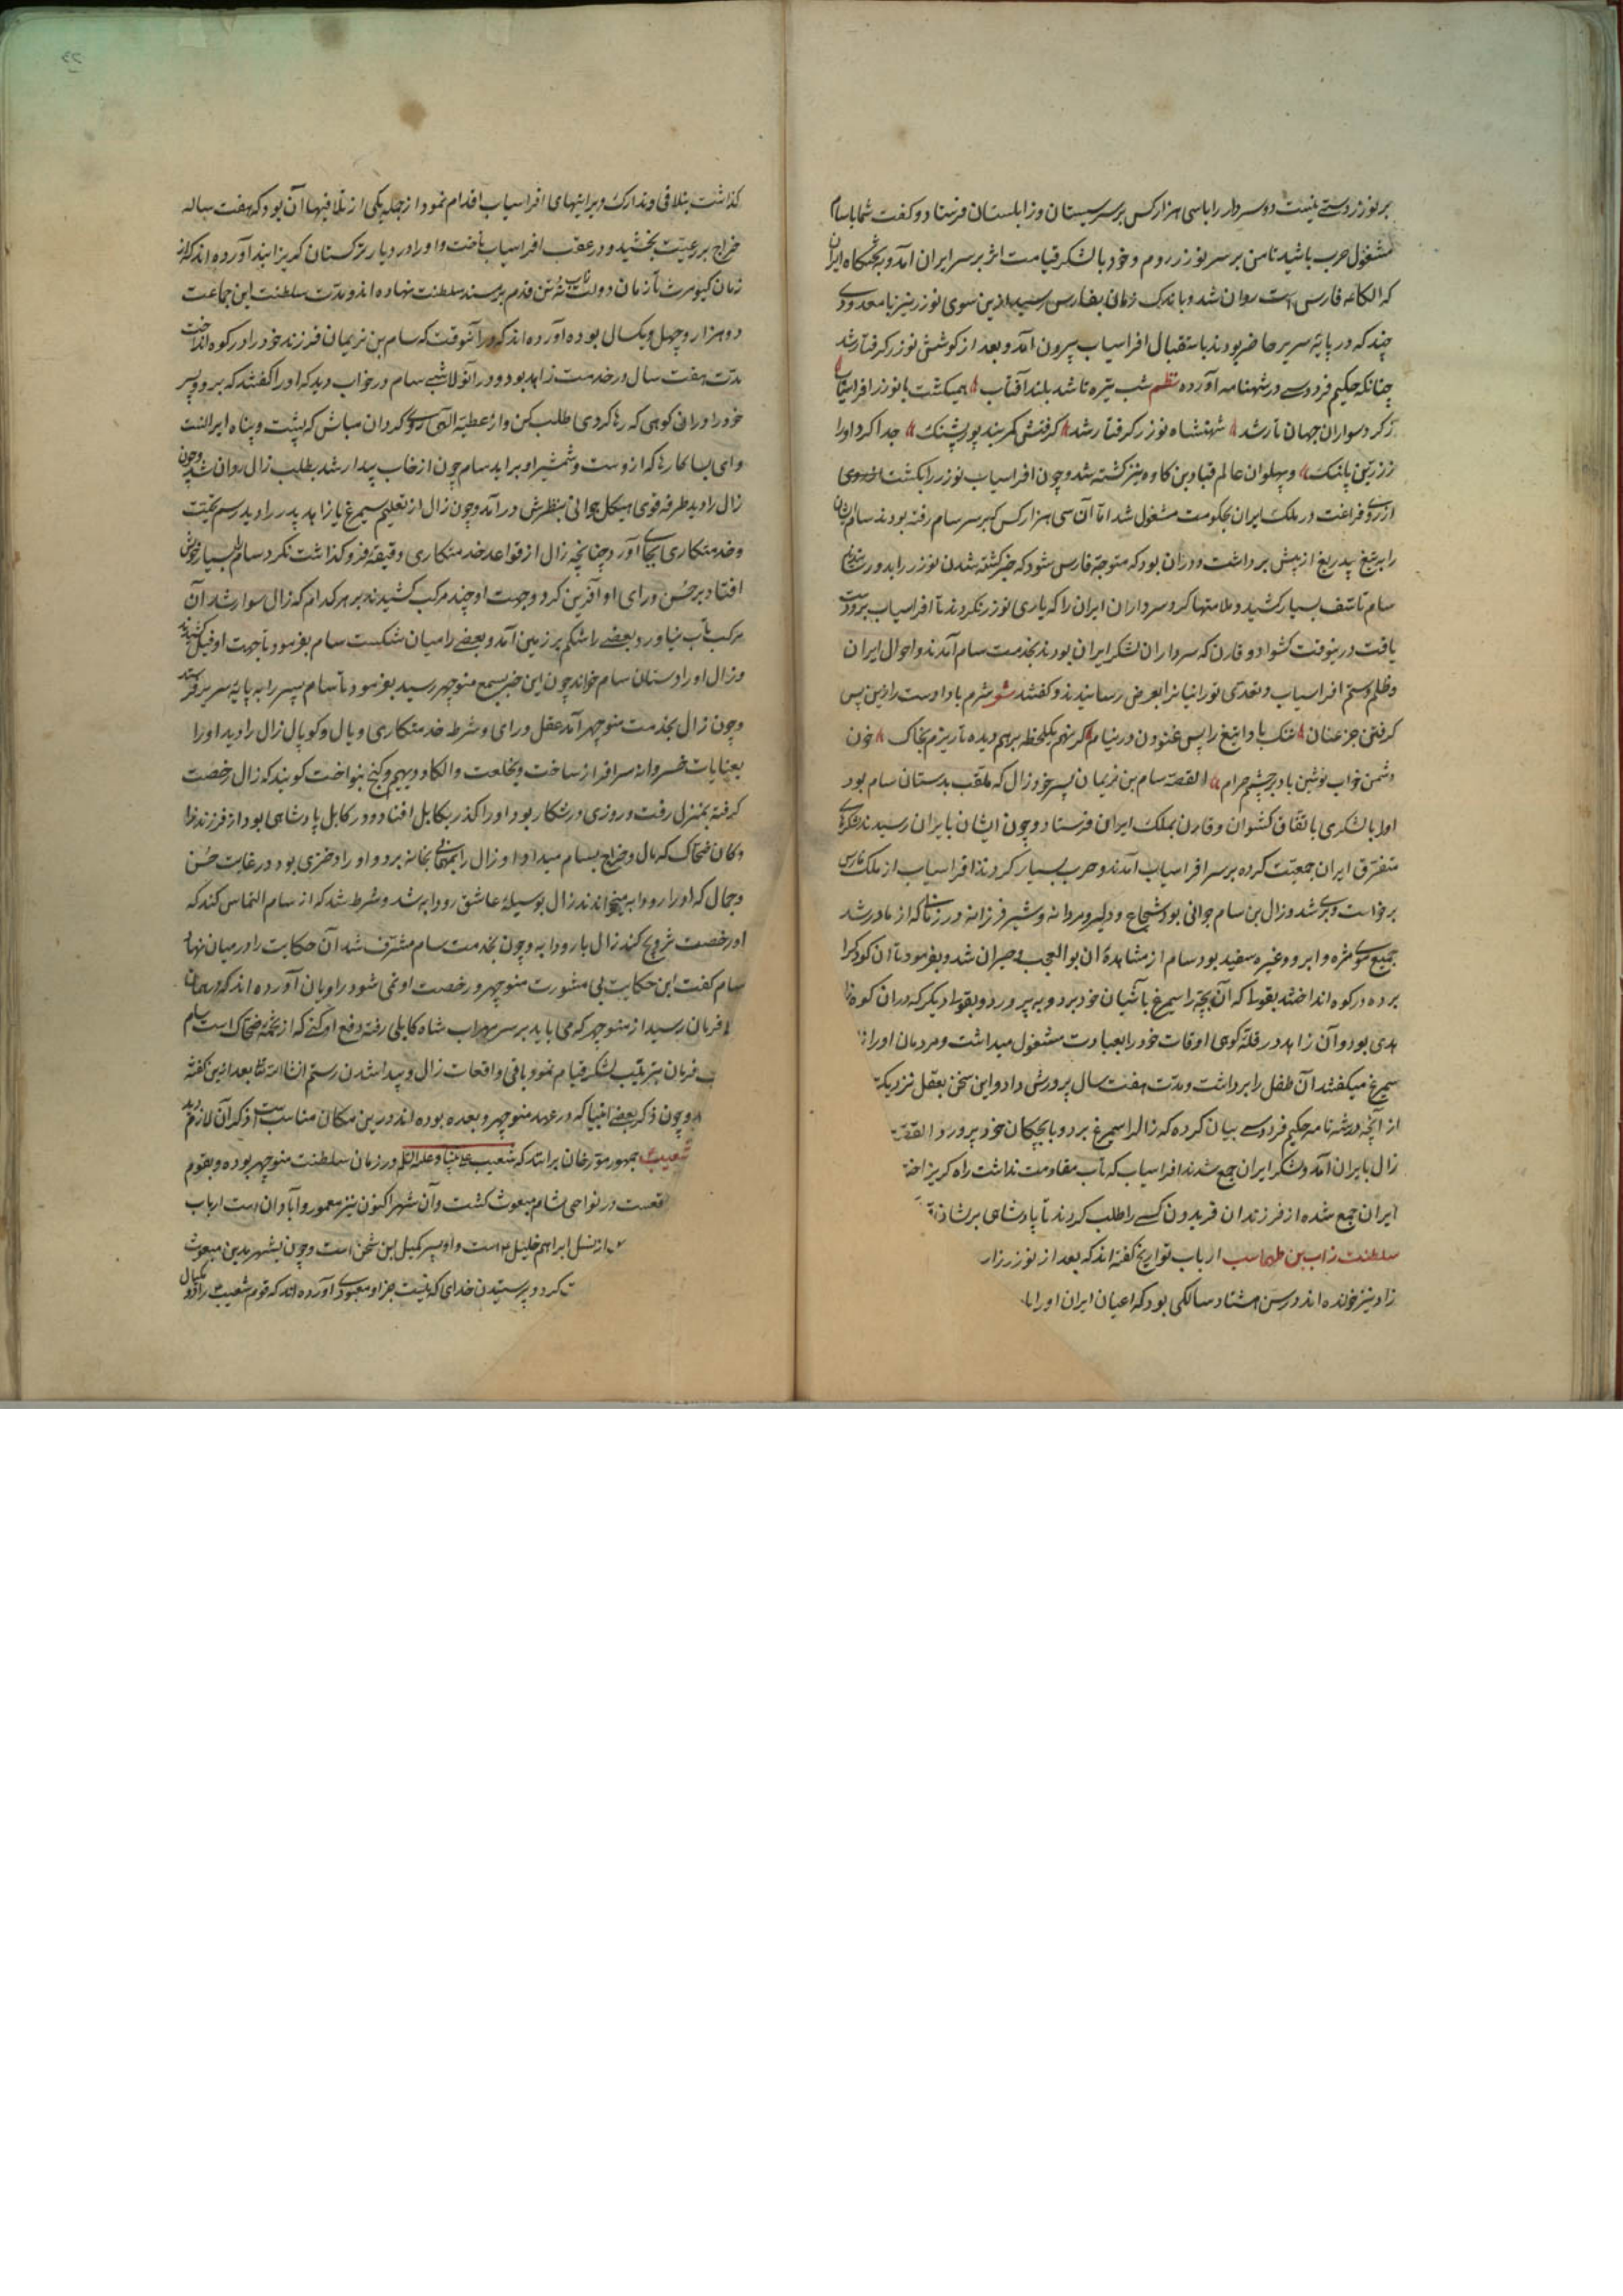 بر نوزر دستے نیست دو سردار را با سی هزار کس بر سر سیستان و زابلستان فرستاد و کفت شما با سام
مشغول حرب باشید تا من بر سر نوزر روم و خود با لشکر قیامت اثر بر سر ایران آمد و به تختکاه ایران
که الکاء فارس است روان شد و باندک زمان بفارس رسید ازین سوی نوزر نیز با معدودی
چند که در پایهٔ سریر حاضر بودند باستقبال افراسیاب بیرون آمد و بعد از کوشش نوزر کرفتار شد
چنانکه حکیم فردوسے در شهنامه آورده نظم شب تیره تا شد بلند آفتاب همیکشت با نوزر افراسیاب
ز کرد سواران جهان تار شد شهنشاه نوزر کرفتار شد کرفتش کمربند پور پشنک جدا کرد او را
ز زین پلنک و پهلوان عالم قباد بن کاوه نیز کشته شد و چون افراسیاب نوزر را بکشت
از روی فراغت در ملک ایران بحکومت مشغول شد اما آن سی هزار کس که بر سر سام رفته بودند سام ایشان
را به تیغ بیدریغ از پیش برداشت و در آن بود که متوجه فارس شود که خبر کشته شدن نوزر را بدو رسانیدند
سام تاسف بسیار کشید و ملامتها کرد سرداران ایران را که یاری نوزر نکردند تا افراسیاب برو دست
یافت درینوقت کشواد و قارن که سرداران لشکر ایران بودند بخدمت سام آمدند و احوال ایران
و ظلم و ستم افراسیاب و تعدی تورانیان را بعرض رسانیدند و کفتند شعر شرم باد اوست را زین پس
کرفتن جز عنان ننک باد این تیغ را پس غنودن در نیام کر نهم یکلحظه بر هم دیده تا ریزم بخاک خون
دشمن خواب نوشین باد بر چشم حرام القصه سام بن نریمان پسر خود زال که ملقب بدستان سام بود
او را با لشکری باتفاق کشوان و قارن بملک ایران فرستاد و چون ایشان بایران رسیدند لشکرهای
متفرق ایران جمعیت کرده بر سر افراسیاب آمدند و حرب بسیار کردند افراسیاب از ملک فارس
برخواست و بری شد و زال بن سام جوانی بود شجاع و دلیر و مردانه و شیر فرزانه و در زمانی که از مادر شد
جمیع موی مژه و ابرو و غیره سفید بود سام از مشاهدهٔ آن بوالعجب حیران شد و بفرمود تا آن کودک را
برده در کوه انداختند بقولی که آن بچه را سیمرغ بآشیان خود برد و به پرورد و بقول دیکر که در آن کوه زا
هدی بود و آن زاهد در قلهٔ کوهی اوقات خود را بعبادت مشغول میداشت و مردمان او را
سیمرغ میکفتند آن طفل را برداشت و مدت هفت سال پرورش داد و این سخن بعقل نزدیکتر
از آنچه در شهنامه حکیم فردوسے بیان کرده که زال را سیمرغ برد و با بچکان خود پرورد القصه
زال بایران آمد و لشکر ایران جمع شدند افراسیاب که تاب مقاومت نداشت راه کریز
ایران جمع شده از فرزندان فریدون کسے را طلب کردند تا پادشاهی برشان
سلطنت زاب بن طهماسب ارباب تواریخ کفته اند که بعد از نوزر زاب
زاو نیز خوانده اند در سن هشتاد سالکی بود که اعیان ایران او را
کذاشت بتلافی و تدارک ویرانیهای افراسیاب اقدام نمود از جمله یکی از تلافیها آن بود که هفت ساله
خراج بر رعیت بخشید و در عقب افراسیاب تاخت و او را در دیار ترکستان کریزانید آورده اند که از
زمان کیومرث تا زمان دولت زاب نه تن قدم بر مسند سلطنت نهاده اند و مدت سلطنت این جماعت
دو هزار و چهل و یکسال بوده آورده اند که در آنوقت که سام بن نریمان فرزند خود را در کوه انداخت
مدت هفت سال در خدمت زاهد بود و در آنولا شبے سام در خواب دید که او را کفتند که برو و پسر
خود را در آن کوهی که رها کردی طلب کن و از عطیهٔ آلهی روی کردان مباش که پشت و پناه ایرانست
و ای بسا کارها که از دست و شمشیر او براید سام چون از خاب بیدار شد بطلب زال روان شد و چون
زال را دید طرفه قوی هیکل جوانی بنظرش درآمد و چون زال از تعلیم سیمرغ یا زاهد پدر را دید رسم تحیت
و خدمتکاری بجای آورد چنانچه زال از قواعد خدمتکاری دقیقهٔ فروکذاشت نکرد سام را بسیار خوش
افتاد بر حسن و رای او آفرین کرد و جهت او چند مرکب کشیدند بر هر کدام که زال سوار شد آن
مرکب تاب نیاورد و بعضے را شکم بر زمین آمد و بعضے را میان شکست سام بفرمود تا جهت او فیل کشیدند
و زال او را دستان سام خواند چون این خبر بسمع منوچهر رسید بفرمود تا سام پسر را به پایهٔ سریر فرستد
و چون زال بخدمت منوچهر آمد عقل و رای و شرط خدمتکاری و یال و کوپال زال را دید او را
بعنایات خسروانه سرافراز ساخت و بخلعت و الکا و دیهیم و کنج بنواخت کویند که زال رخصت
کرفته بمنزل رفت و روزی در شکار بود او را کذر بکابل افتاد و در کابل پادشاهی بود از فرزندزا
دکان ضحاک که مال و خراج بسام میداد او زال را بمهمانی بخانه برد و او را دختری بود در غایت حسن
و جمال که او را رودابه میخواندند زال بوسیلهٔ عاشق رودابه شد و شرط شد که از سام التماس کند که
او رخصت تزویج کند زال با رودابه و چون بخدمت سام مشرف شد آن حکایت را در میان نهاد
سام کفت این حکایت بی مشورت منوچهر و رخصت او نمی شود راویان آورده اند که درهمان
فرمان رسید از منوچهر که می باید بر سر مهراب شاه کابلی رفته دفع او کنے که از تخمهٔ ضحاک است سام
فرمان بترتیب لشکر قیام نمود باقی واقعات زال و پیدا شدن رستم انشاالله تعا بعد ازین کفته
و چون ذکر بعضے انبیا که در عهد منوچهر و بعده بوده اند درین مکان مناسب است ذکر آن لازم دید
شعیب جمهور مورخان برانند که شعیب علی نبینا و علیه السلم در زمان سلطنت منوچهر بوده و بقوم
در نواحی شام مبعوث کشت و آن شهر اکنون نیز معمور و آبادان است ارباب
از نسل ابراهم خلیل است و او پسر کمیل بن شخن است و چون بشهر مدین مبعوث
کرد و پرستیدن خدای که نیست جز او معبودی آورده اند که قوم شعیب را دو مکیال